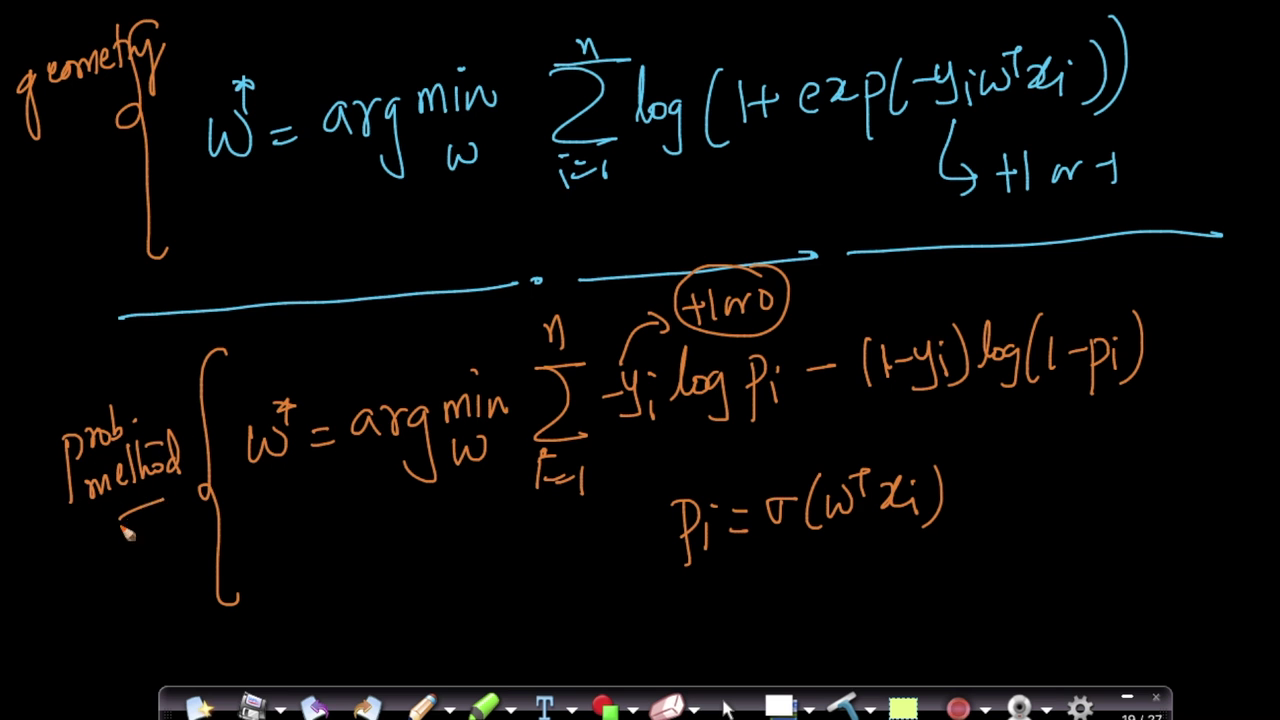 geometry
w* = arg min w Σ i=1 n log(1+ exp(-yi wᵀxi))
↳ +1 or -1
+1 or 0
prob. method
w* = arg min w Σ i=1 n -yi log pi - (1-yi) log(1-pi)
pi = σ(wᵀxi)
T
19 / 27